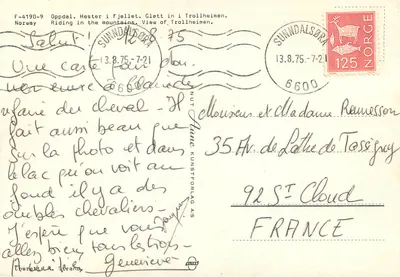 F-4190-9 Oppdal. Hester i fjellet. Glett inn i Trollheimen.
Norway Riding in the mountains. View of Trollheimen.
Salut ! 12/8 75
Une carte pour
mon envie à
faire du cheval - Il
fait aussi beau que
sur la photo et dans
le lac qu'on voit au
fond il y a des
chevaliers -
J'espère que vous
allez bien tous les trois -
Geneviève
SUNNDALSØRA
13.8.75.-7-21
6600
SUNNDALSØRA
13.8.75.-7-21
6600
NORGE
125
KNUT Aune KUNSTFORLAG AS
Monsieur et Madame Ramesson
35 Av. de Lattre de Tassigny
92 St Cloud
FRANCE